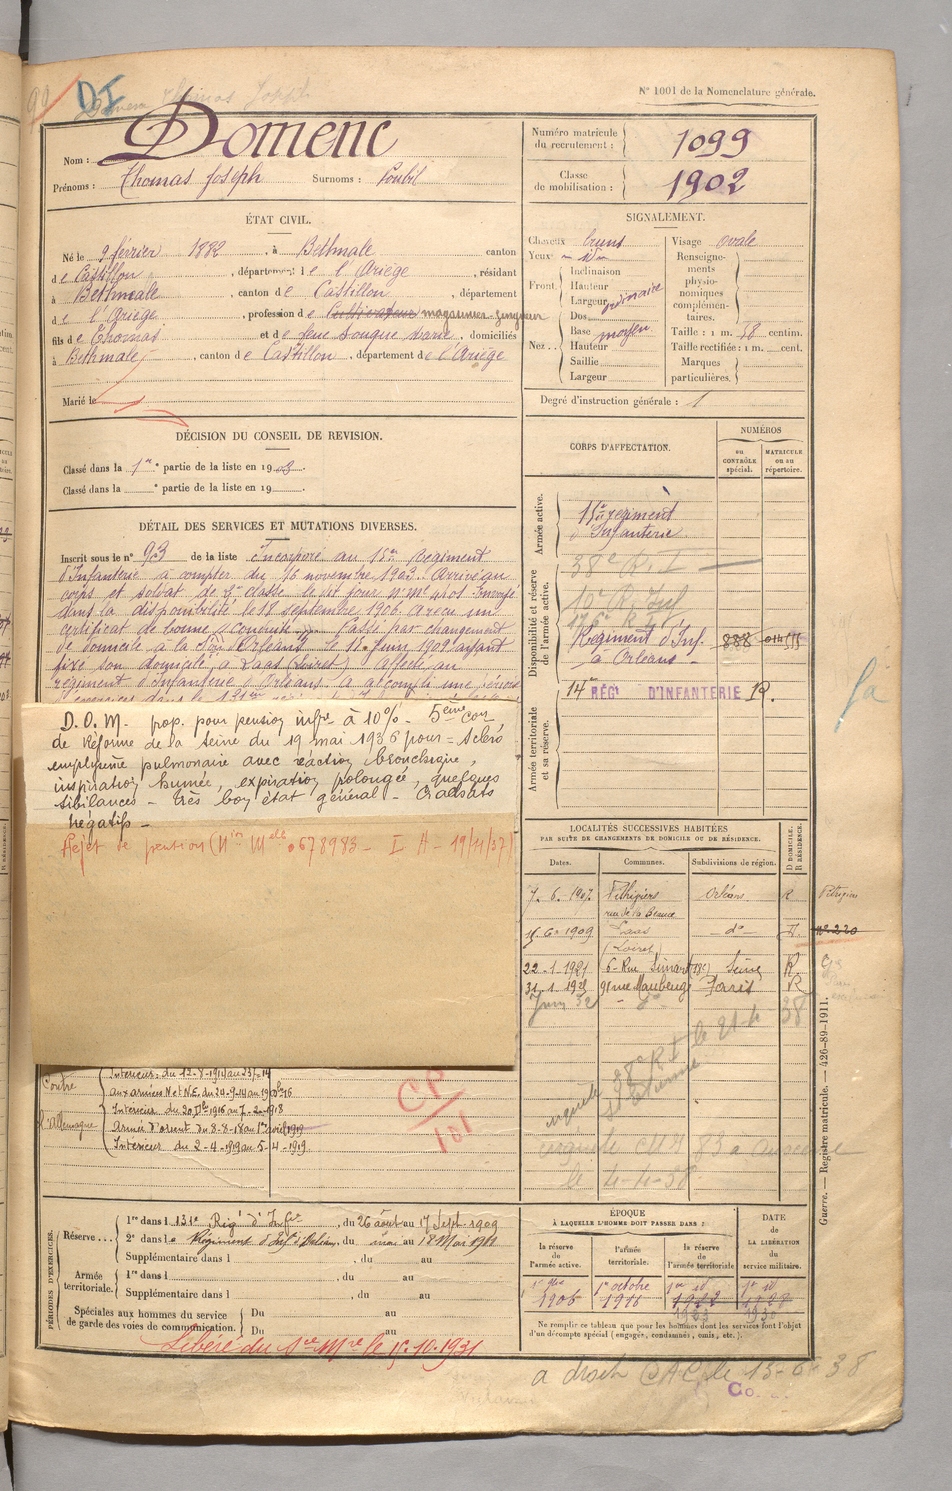 DI
N° 1001 de la Nomenclature générale.
Nom : Domenc
Prénoms : Thomas Joseph Surnoms : Poubil
Numéro matricule du recrutement : 1099
Classe de mobilisation : 1902
ÉTAT CIVIL.
Né le 9 février 1882, à Bethmale canton
de Castillon, département de l'Ariège, résidant
à Bethmale, canton de Castillon, département
de l'Ariège, profession de Cultivateur magasinier-
fils de Thomas et de feue Souque Marie, domiciliés
à Bethmale, canton de Castillon, département de l'Ariège
Marié le
SIGNALEMENT.
Cheveux bruns
Yeux idm
Front Inclinaison
Hauteur
Largeur ordinaire
Nez Dos
Base moyen
Hauteur
Saillie
Largeur
Visage ovale
Renseignements physionomiques complémentaires.
Taille : 1 m. 58 centim.
Taille rectifiée : 1 m. cent.
Marques particulières.
Degré d'instruction générale : 1
DÉCISION DU CONSEIL DE REVISION.
Classé dans la 1re partie de la liste en 1903.
Classé dans la partie de la liste en 19
DÉTAIL DES SERVICES ET MUTATIONS DIVERSES.
Inscrit sous le n° 93 de la liste Incorporé au 15e Régiment
d'Infanterie à compter du 16 novembre 1903. Arrivé au
corps et soldat de 2e classe le dit jour n° Mle 4401 Envoyé
dans la disponibilité le 18 septembre 1906 a reçu un
certificat de bonne conduite. Passé par changement
de domicile à la Son d'Orléans le 11 Juin 1909 ayant
fixé son domicile à Laas (Loiret) Affecté au
régiment d'Infanterie d'Orléans A accompli une période
D.O.M. prop. pour pension infre à 10% - 5ème Con
de Réforme de la Seine du 19 mai 1936 pour = Scléro
emphysème pulmonaire avec réaction bronchique,
inspiration humée, expiration prolongée, quelques
sibilances - très bon état général - Crachats
négatifs -
Rejet de pension (Min Melle 0678983 - I H - 19/11/37)
CORPS D'AFFECTATION.
NUMÉROS
au CONTRÔLE spécial.
MATRICULE ou au répertoire.
Armée active.
15e régiment
d'Infanterie
Disponibilité et réserve de l'armée active.
38e R. I
Régiment d'Inf.
à Orléans
888
Armée territoriale et sa réserve.
14e RÉGt D'INFANTERIE R.
LOCALITÉS SUCCESSIVES HABITÉES
PAR SUITE DE CHANGEMENTS DE DOMICILE OU DE RÉSIDENCE.
Dates. Communes. Subdivisions de région. D DOMICILE. R RÉSIDENCE.
7. 6. 1907 Pithiviers Orléans R
rue de la Beauce
11 6. 1909 Laas -do- D.
(Loiret)
22-1-1921 6- Rue Simart (18e) Seine R.
31-1 1921 91 rue Maubeuge Paris R
Juin 32
38e R I le 21-4-38
le 4-4-38
Contre
l'allemagne
Intérieur: du 12-8-1914 au 23/-14
aux armées N et N.E. du 24-9-14 au 19 Dbre 16
Intérieur du 20 Dbre 1916 au 7-2-1918
Armée d'orient du 8-8-18 au 1er avril 1919
Intérieur du 2-4-1919 au 5-4-1919.
CP/101
PÉRIODES D'EXERCICES.
Réserve... 1re dans l 131e Régt d'Infie, du 26 août au 17 Sept. 1909
2e dans le Régiment d'Inf d'Orléans, du au 18 Mai 1911
Supplémentaire dans l , du au
Armée territoriale. 1re dans l , du au
Supplémentaire dans l , du au
Spéciales aux hommes du service de garde des voies de communication. Du au
Du au
Libéré du Sce Mre le 15.10.1931
ÉPOQUE
À LAQUELLE L'HOMME DOIT PASSER DANS :
la réserve de l'armée active.
l'armée territoriale.
la réserve de l'armée territoriale
DATE de LA LIBÉRATION du service militaire.
1er 9bre 1906
1er octobre 1916
1er id 1922
1923
1er id 1928
1930
Ne remplir ce tableau que pour les hommes dont les services font l'objet d'un décompte spécial (engagés, condamnés, omis, etc.).
Guerre. — Registre matricule. — 426-89-1911.
a droit C.A.C. le 15-6-38